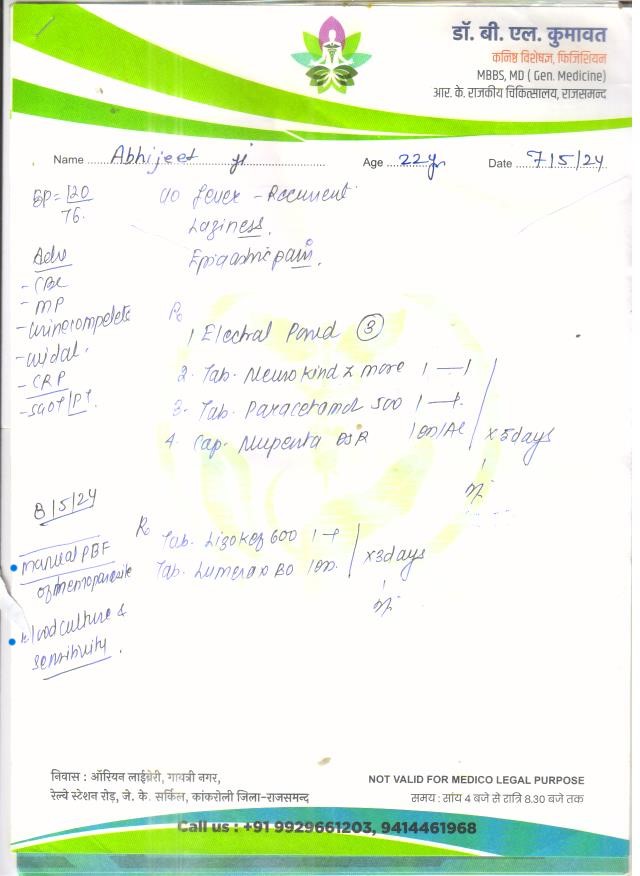 डॉ. बी. एल. कुमावत
कनिष्ठ विशेषज्ञ, फिजिशियन
MBBS, MD ( Gen. Medicine)
आर. के. राजकीय चिकित्सालय, राजसमन्द
Name Abhijeet ji Age 22yr Date 7/5/24
BP = 120/76.
c/o fever - Recurrent
Laziness.
Epigastric pain.
Adv
- CBC
- MP
- urine complete
- widal.
- CRP
- SGOT/PT.
Rx
1 Electral Powd (3)
2. Tab. Neurokind z more 1 — 1
3. Tab. Paracetamol 500 1 — 1.
4. Cap. Nupenta DSR 1 OD/AC
x 5 days
8/5/24
manual PBF
of hemoparasite
blood culture &
sensitivity.
Rx
Tab. Lizokef 600 1 — 1
Tab. Lumerax 80 1 OD.
x 3 days
निवास : ऑरियन लाईब्रेरी, गायत्री नगर,
रेल्वे स्टेशन रोड़, जे. के. सर्किल, कांकरोली जिला-राजसमन्द
NOT VALID FOR MEDICO LEGAL PURPOSE
समय : सांय 4 बजे से रात्रि 8.30 बजे तक
Call us : +91 9929661203, 9414461968